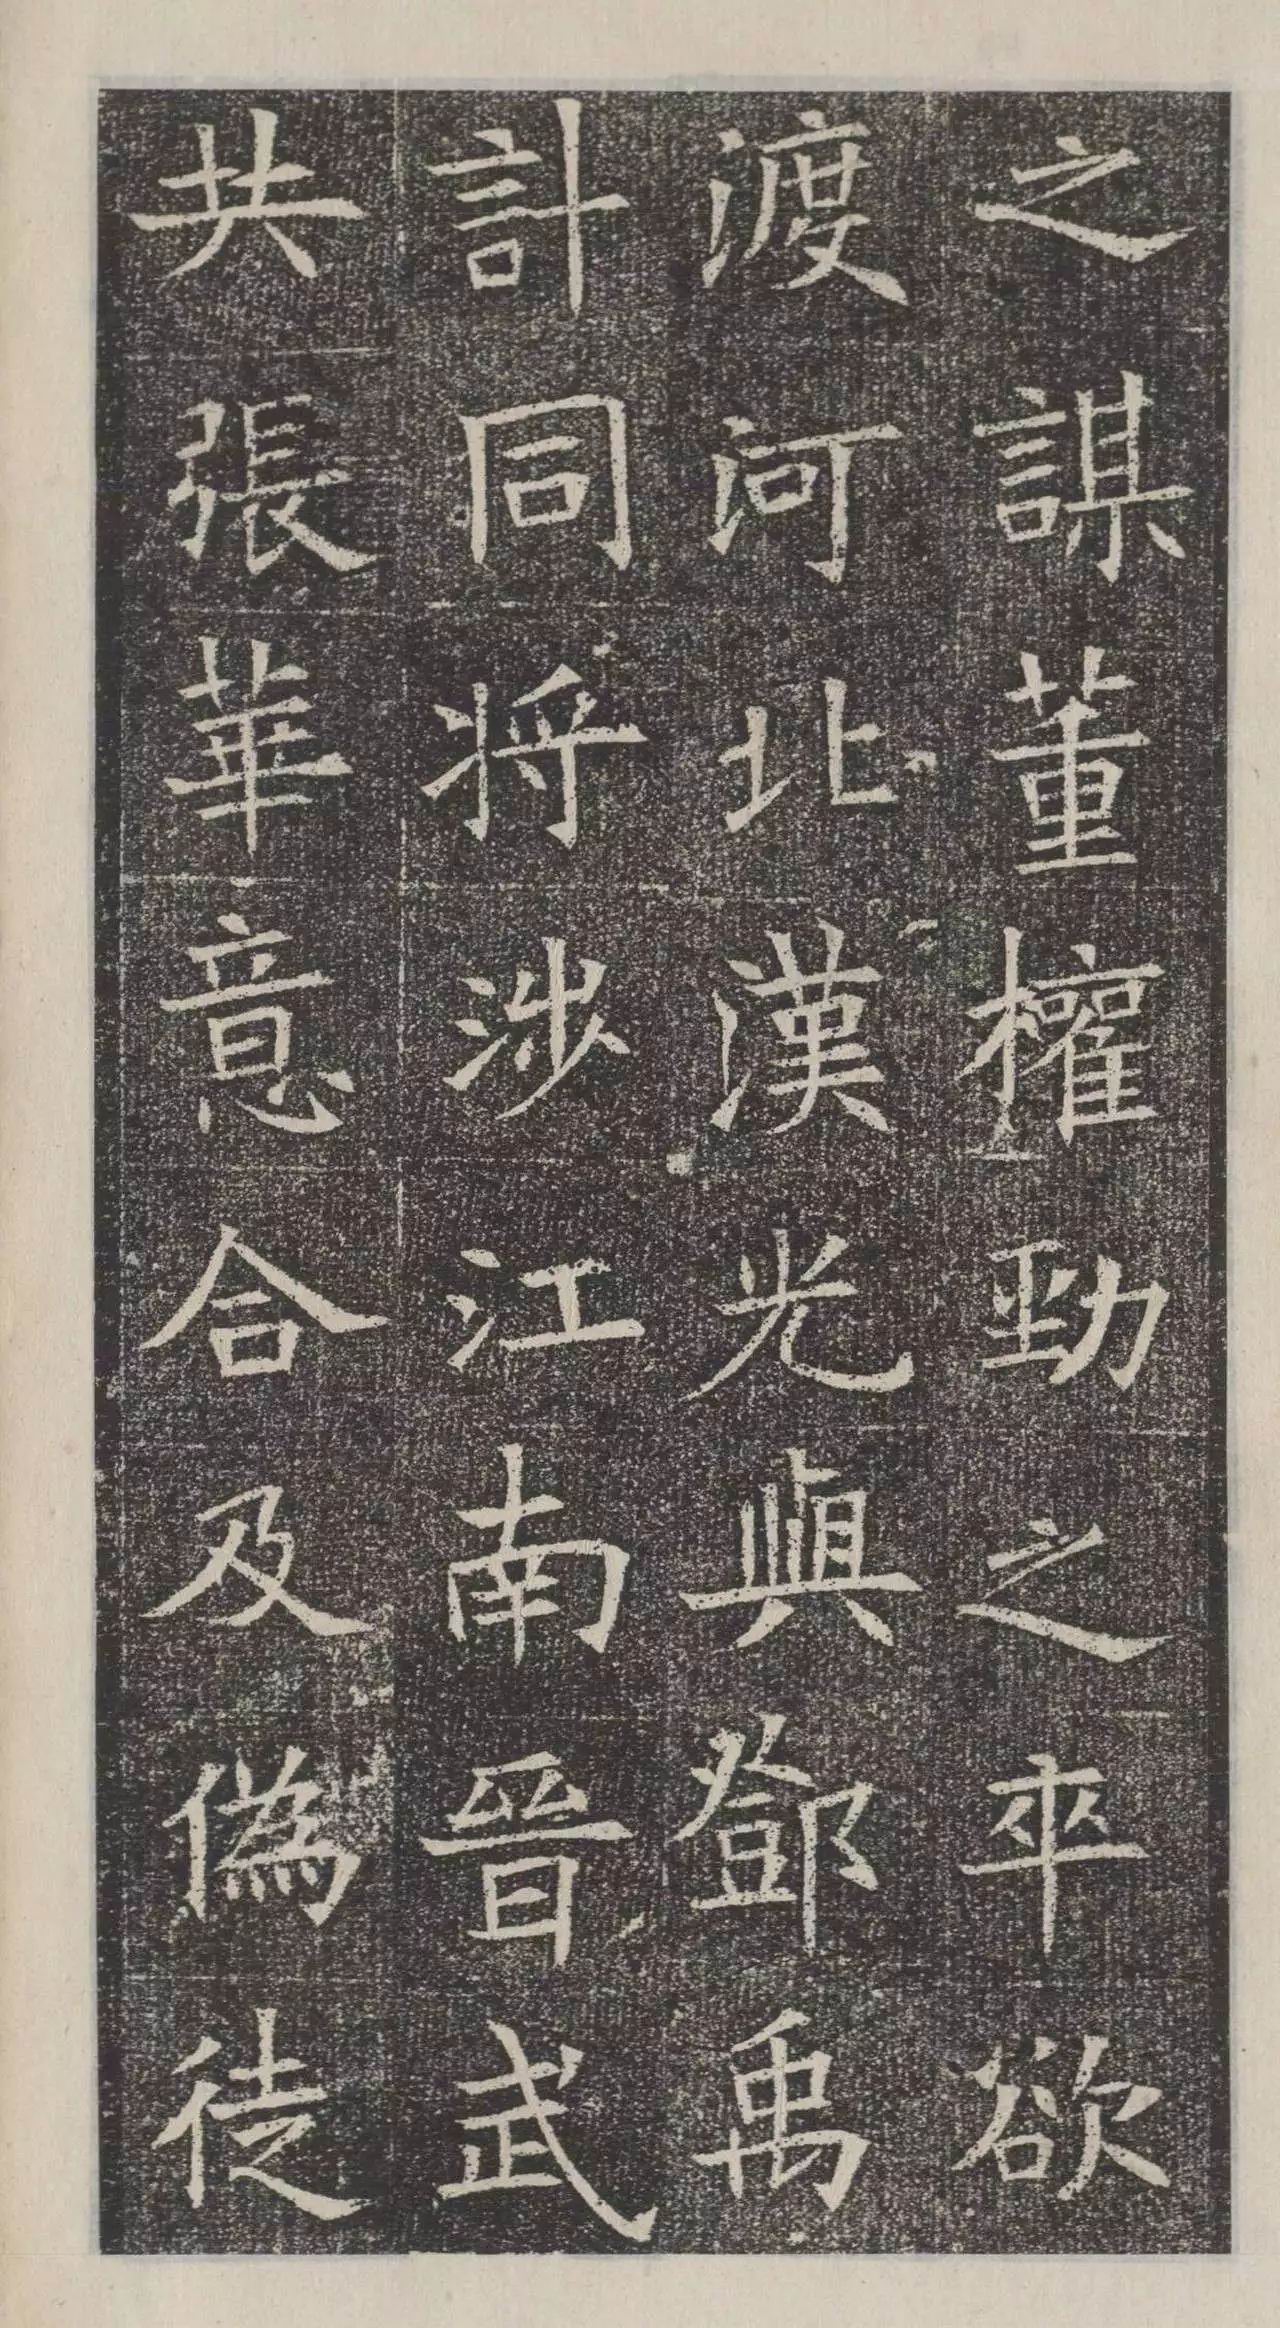 之謀董權勁之卒欲
渡河北漢光與鄧禹
計同将涉江南晉武
共張華意合及偽徒